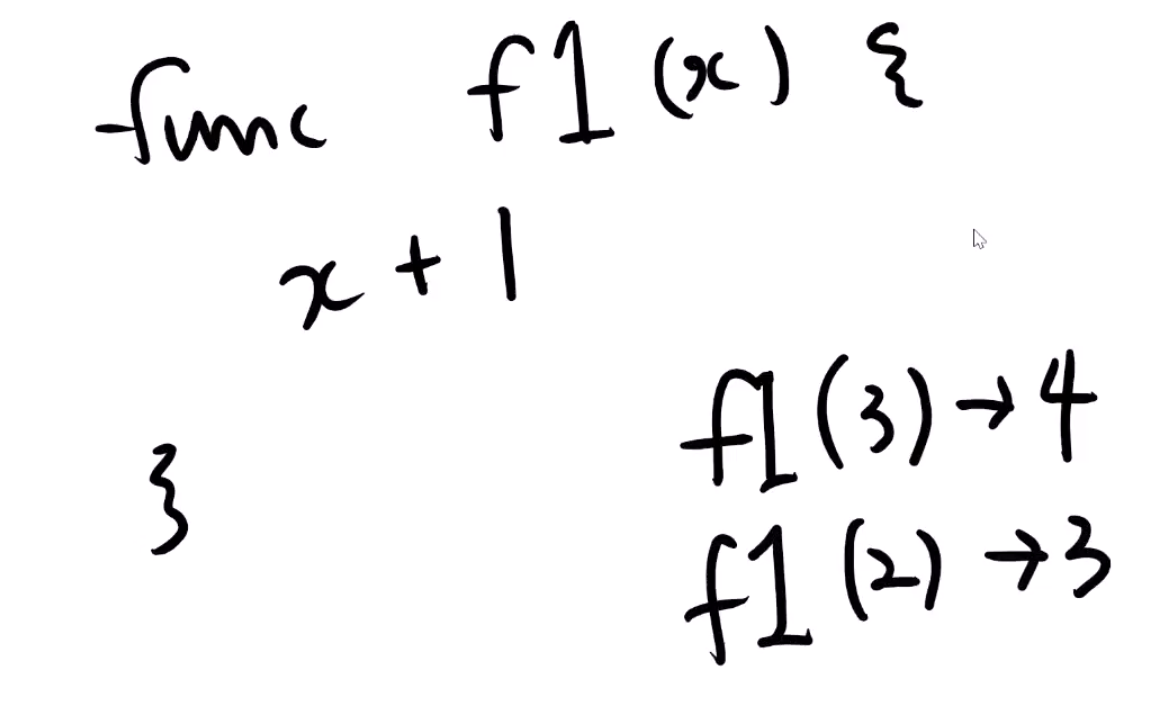 func f1 (x) {
x + 1
f1 (3) → 4
}
f1 (2) → 3